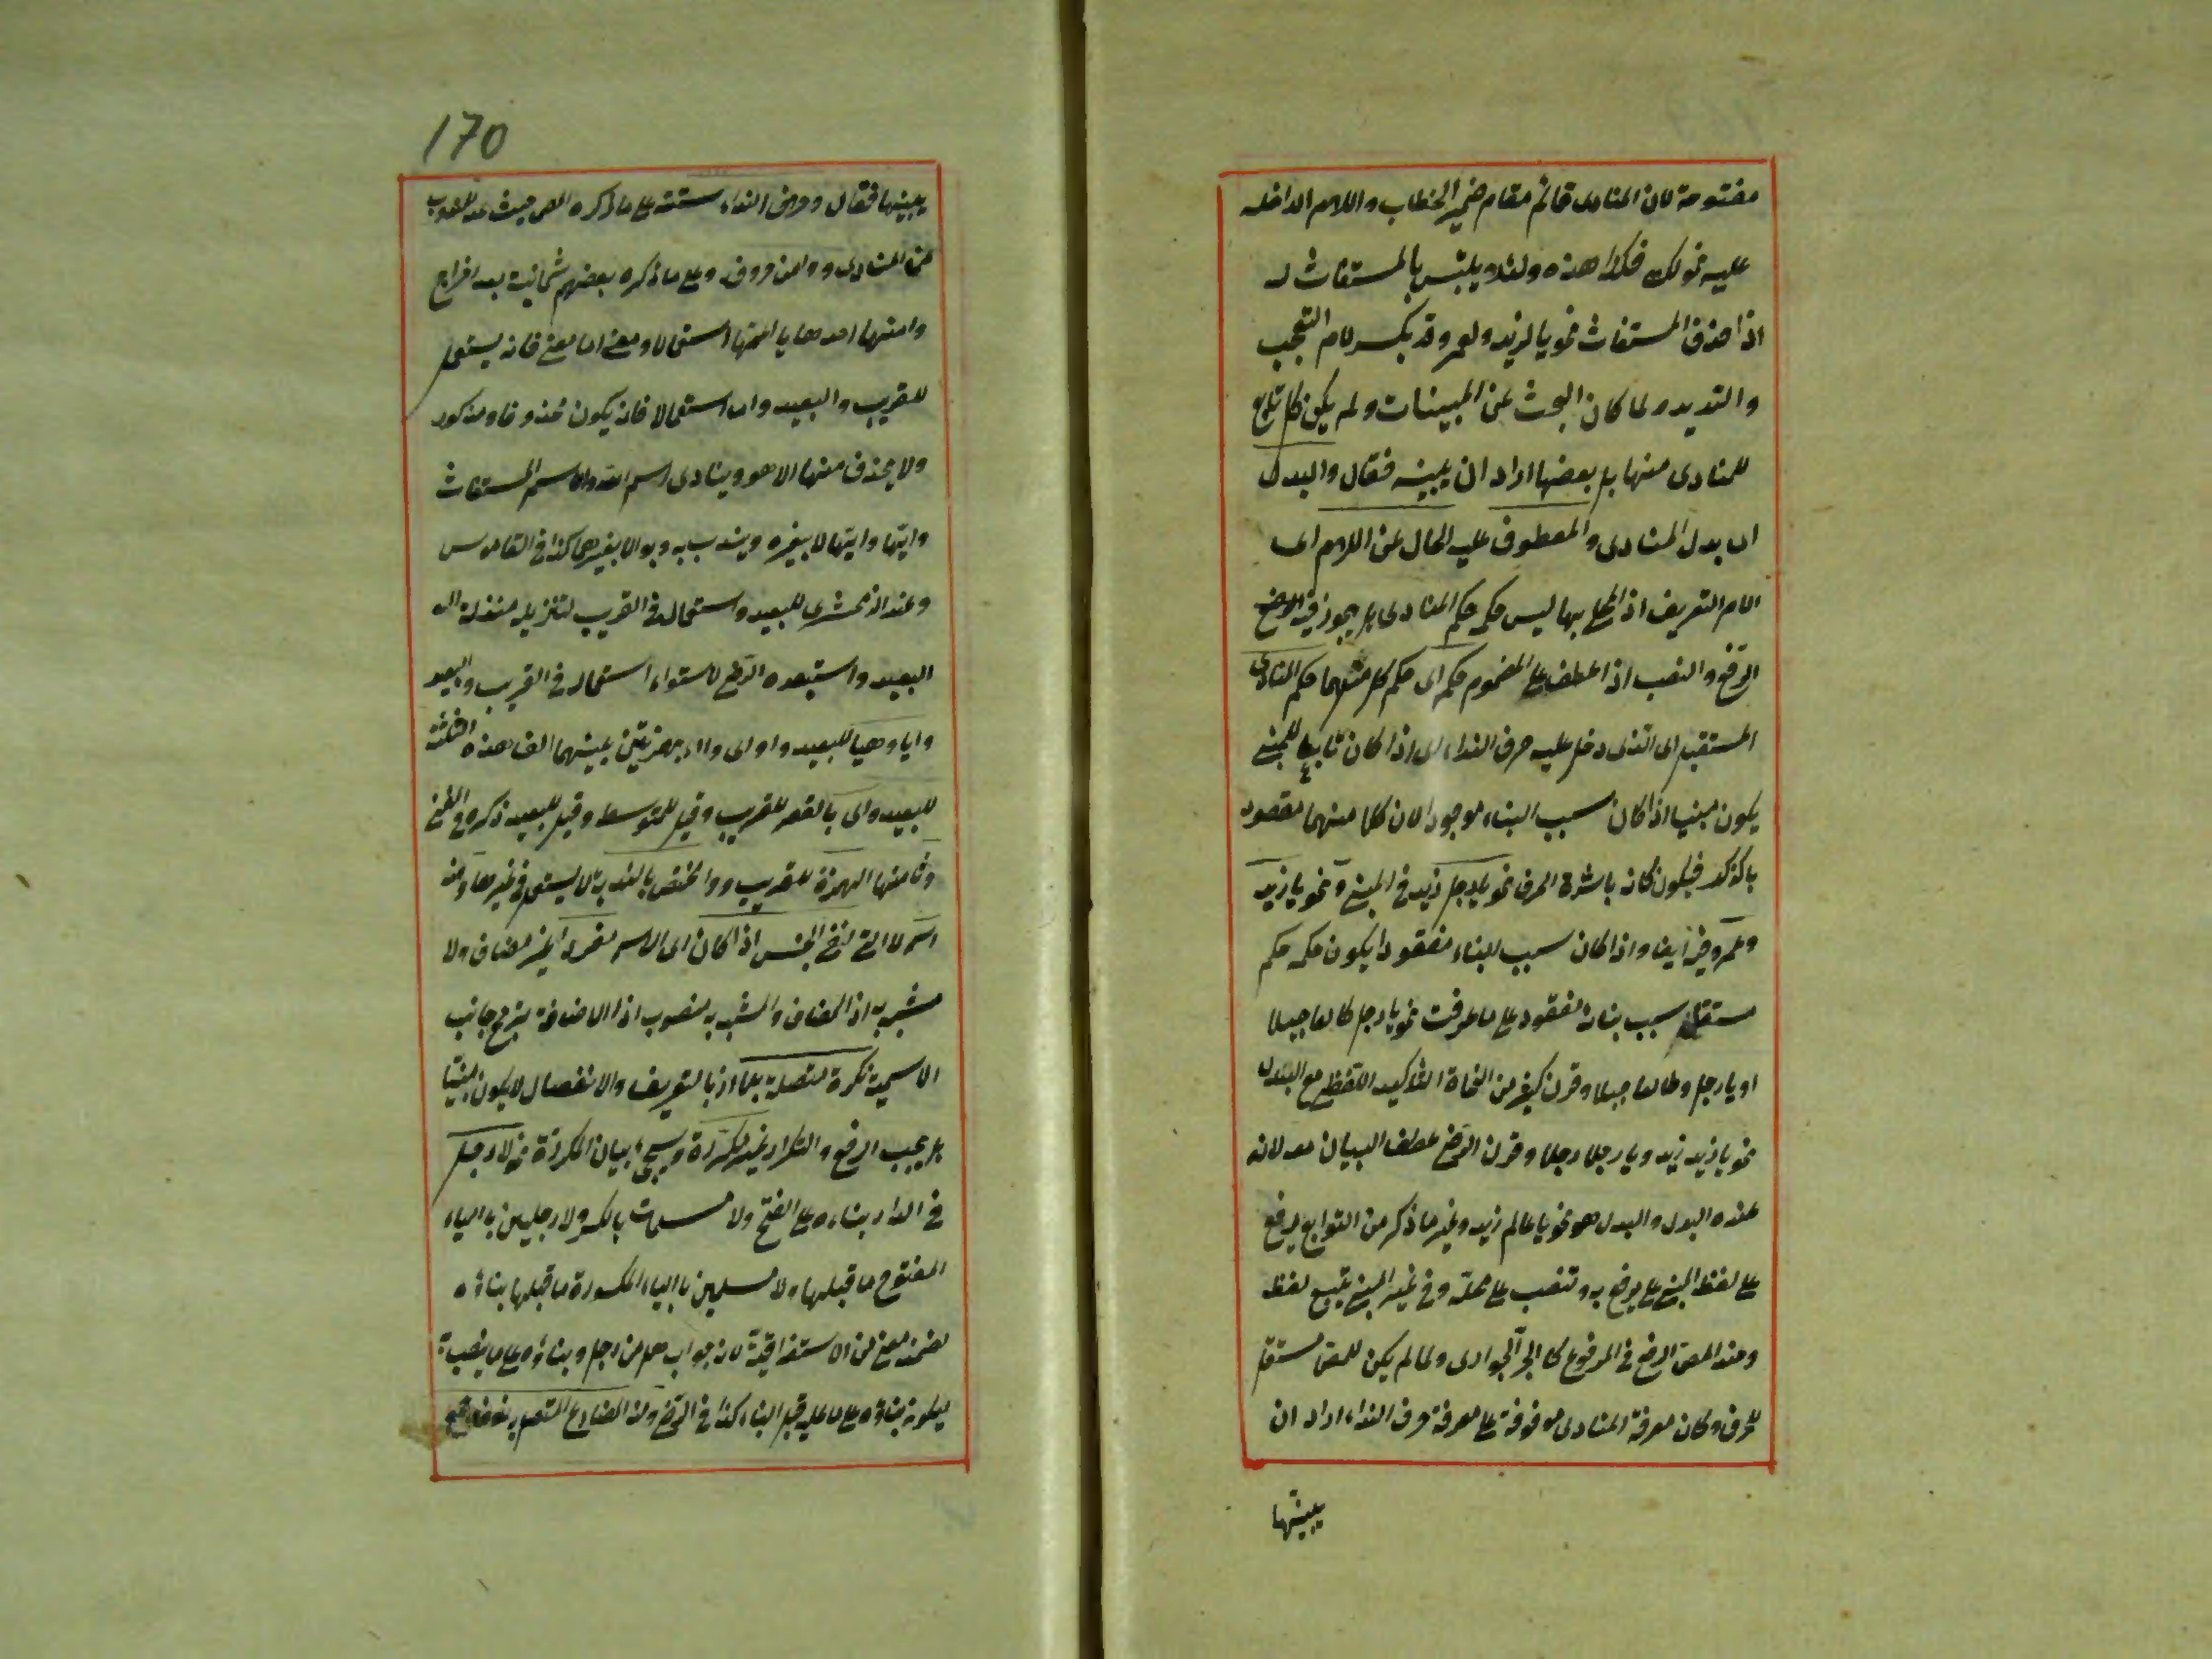 مفتوحة لان المنادى قائم مقام ضمير الخطاب واللام الداخلة
عليه نحو لك فكذا هذه ولئلا يلتبس بالمستغاث له
اذا حذف المستغاث نحو يا لزيد ولعمرو قد يكسر لام التعجب
والتهديد ولما كان البحث عن المبينات ولم يكن كل تابع
للمنادى منها بل بعضها اراد ان يبينه فقال والبدل
اى بدل المنادى والمعطوف عليه الخال عن اللام اى
لام التعريف اذ المحلى بها ليس حكمه حكم المنادى بل يجوز فيه
الرفع والنصب اذا عطف على المضموم حكمه اى حكم كل منهما حكم المنادى
المستقبل اى الذى دخل عليه حرف النداء اى اذا كان تابعا للمبنى
يكون مبنيا اذا كان سبب البناء موجودا لان كلا منهما مقصود
بالذكر فيكون كانه باشره الحرف نحو يا رجل زيد فى المبنى ونحو يا زيد
وعمرو فيه ايضا واذا كان سبب البناء مفقودا يكون حكمه حكم
مستقل سبب بنائه مفقود على ما عرفت نحو يا رجل طالعا جبلا
او يا رجل وطالعا جبلا وقرن كثير من النحاة التأكيد اللفظى مع البدل
نحو يا زيد زيد ويا رجلا رجلا وقرن الرضى عطف البيان معه لانه
عنده البدل والبدل هو نحو يا عالم زيد وغير ما ذكر من التوابع يرفع
على لفظ المبنى على ما يرفع به وتنصب على محله وفى غير المبنى يتبع لفظه
وعند المص الرفع فى المرفوع كالجر الجوارى ولما لم يكن للمص مستقل
للحرف وكان معرفة المنادى موقوفة على معرفة حرف النداء اراد ان
يبينها
170
يبينها فقال وحرف النداء ستة على ما ذكره المص حيث عد المندوب
عن المنادى ووا من حروف وعلى ما ذكره بعضهم ثمانية بعد اخراج
وا منها احدها يا اعمها استعمالا ومعنى اما معنى فانه يستعمل
للقريب والبعيد واما استعمالا فانه يكون محذوفا ومذكورا
ولا يحذف منها الا هو وينادى اسم الله والاسم المستغاث
وايها وايتها لا بغيره ويندب به وبوا لا بغيرهما كذا فى القاموس
وعند الزمخشرى للبعيد واستعماله فى القريب لتنزيله منزلة
البعيد واستبعده الرضى لاستواء استعماله فى القريب والبعيد
وايا وهيا للبعيد واو اى واا بهمزتين بينهما الف هذه الثلثة
للبعيد واى بالقصر للقريب وقيل للمتوسط وقيل للبعيد ذكره فى المغنى
وثامنها الهمزة للقريب ووا المختص بالندبة لا يستعمل فى غيرها ومنه
اسم لا التى لنفى الجنس اذا كان اى الاسم مفردا غير مضاف ولا
مشبه به اذ المضاف والمشبه به منصوب اذ الاضافة يرجح جانب
الاسمية نكرة متصلة بلا اذ بالتعريف والانفصال لا يكون مبنيا
بل يجب الرفع والتكرار غير مكررة وسيجئ بيان المكررة نحو لا رجل
فى الدار بناءه على الفتح ولا مسلمات بالكسر ولا رجلين بالياء
المفتوح ما قبلها ولا مسلمين بالياء المكسورة ما قبلها بناؤه
لتضمنه معنى من الاستغراقية لانه جواب هل من رجل وبناؤه على ما ينصب به
ليكون بناؤه على ما عليه قبل البناء كذا فى الرضى ومنه المضارع المتصل به نون جمع